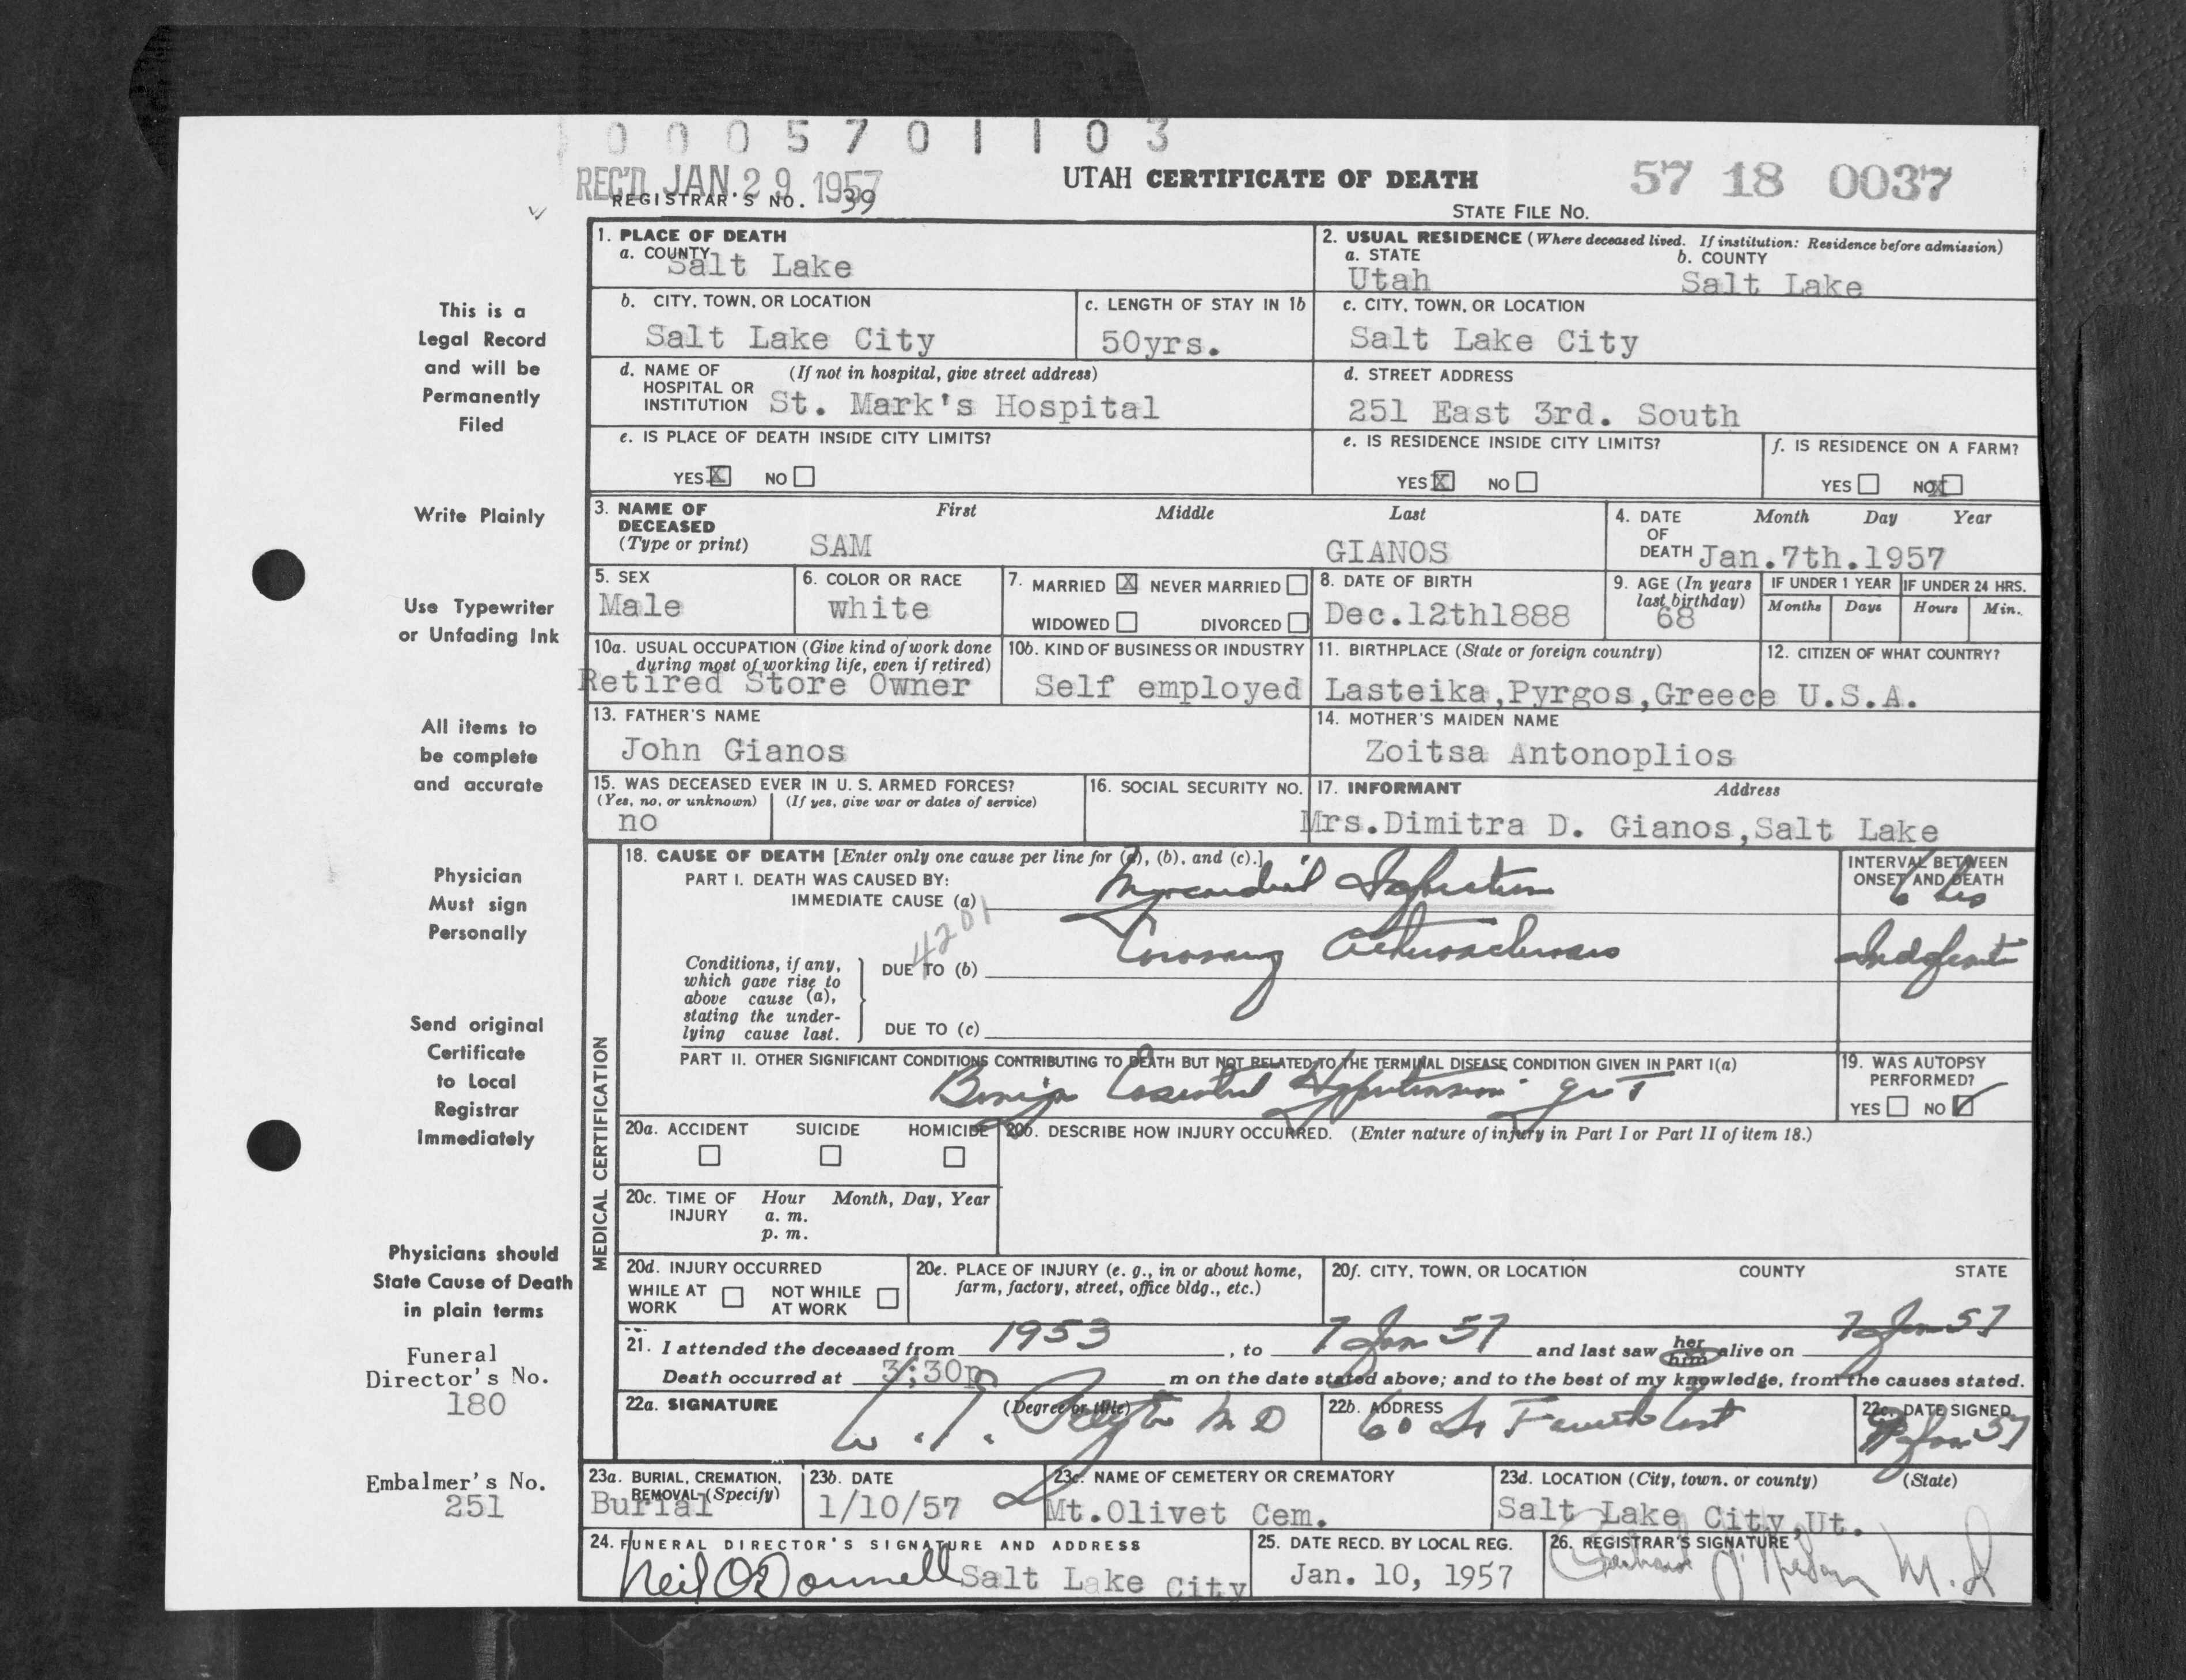 0 0 0 5 7 0 1 1 0 3
REC'D JAN. 29 1957
REGISTRAR'S NO. 39
UTAH CERTIFICATE OF DEATH
57 18 0037
STATE FILE NO.
This is a
Legal Record
and will be
Permanently
Filed
Write Plainly
Use Typewriter
or Unfading Ink
All items to
be complete
and accurate
Physician
Must sign
Personally
Send original
Certificate
to Local
Registrar
Immediately
Physicians should
State Cause of Death
in plain terms
Funeral
Director's No.
180
Embalmer's No.
251
1. PLACE OF DEATH
a. COUNTY
Salt Lake
2. USUAL RESIDENCE (Where deceased lived. If institution: Residence before admission)
a. STATE b. COUNTY
Utah Salt Lake
b. CITY, TOWN, OR LOCATION
Salt Lake City
c. LENGTH OF STAY IN 1b
50yrs.
c. CITY, TOWN, OR LOCATION
Salt Lake City
d. NAME OF (If not in hospital, give street address)
HOSPITAL OR
INSTITUTION St. Mark's Hospital
d. STREET ADDRESS
251 East 3rd. South
e. IS PLACE OF DEATH INSIDE CITY LIMITS?
YES X NO
e. IS RESIDENCE INSIDE CITY LIMITS?
YES X NO
f. IS RESIDENCE ON A FARM?
YES NO X
3. NAME OF First Middle Last
DECEASED
(Type or print) SAM GIANOS
4. DATE Month Day Year
OF
DEATH Jan.7th.1957
5. SEX
Male
6. COLOR OR RACE
white
7. MARRIED X NEVER MARRIED
WIDOWED DIVORCED
8. DATE OF BIRTH
Dec.12th1888
9. AGE (In years
last birthday)
68
IF UNDER 1 YEAR IF UNDER 24 HRS.
Months Days Hours Min.
10a. USUAL OCCUPATION (Give kind of work done
during most of working life, even if retired)
Retired Store Owner
10b. KIND OF BUSINESS OR INDUSTRY
Self employed
11. BIRTHPLACE (State or foreign country)
Lasteika,Pyrgos,Greece
12. CITIZEN OF WHAT COUNTRY?
U.S.A.
13. FATHER'S NAME
John Gianos
14. MOTHER'S MAIDEN NAME
Zoitsa Antonoplios
15. WAS DECEASED EVER IN U. S. ARMED FORCES?
(Yes, no, or unknown) (If yes, give war or dates of service)
no
16. SOCIAL SECURITY NO.
17. INFORMANT Address
Mrs.Dimitra D. Gianos,Salt Lake
MEDICAL CERTIFICATION
18. CAUSE OF DEATH [Enter only one cause per line for (a), (b), and (c).]
PART I. DEATH WAS CAUSED BY:
IMMEDIATE CAUSE (a) Myocardial Infarction
INTERVAL BETWEEN
ONSET AND DEATH
6 hrs
4201
Conditions, if any,
which gave rise to
above cause (a),
stating the under-
lying cause last.
DUE TO (b) Coronary Atherosclerosis
DUE TO (c)
PART II. OTHER SIGNIFICANT CONDITIONS CONTRIBUTING TO DEATH BUT NOT RELATED TO THE TERMINAL DISEASE CONDITION GIVEN IN PART I(a)
Benign Essential Hypertension
19. WAS AUTOPSY
PERFORMED?
YES NO
20a. ACCIDENT SUICIDE HOMICIDE
20b. DESCRIBE HOW INJURY OCCURRED. (Enter nature of injury in Part I or Part II of item 18.)
20c. TIME OF Hour Month, Day, Year
INJURY a. m.
p. m.
20d. INJURY OCCURRED
WHILE AT NOT WHILE
WORK AT WORK
20e. PLACE OF INJURY (e. g., in or about home,
farm, factory, street, office bldg., etc.)
20f. CITY, TOWN, OR LOCATION COUNTY STATE
21. I attended the deceased from 1953, to 7 Jan 57 and last saw her him alive on 7 Jan 57
Death occurred at 3:30p m on the date stated above; and to the best of my knowledge, from the causes stated.
22a. SIGNATURE (Degree or title)
M D
22b. ADDRESS
60 So Fourth East
22c. DATE SIGNED
Jan 57
23a. BURIAL, CREMATION,
REMOVAL (Specify)
Burial
23b. DATE
1/10/57
23c. NAME OF CEMETERY OR CREMATORY
Mt.Olivet Cem.
23d. LOCATION (City, town, or county) (State)
Salt Lake City,Ut.
24. FUNERAL DIRECTOR'S SIGNATURE AND ADDRESS
Neil O'Donnell Salt Lake City
25. DATE RECD. BY LOCAL REG.
Jan. 10, 1957
26. REGISTRAR'S SIGNATURE
M.D